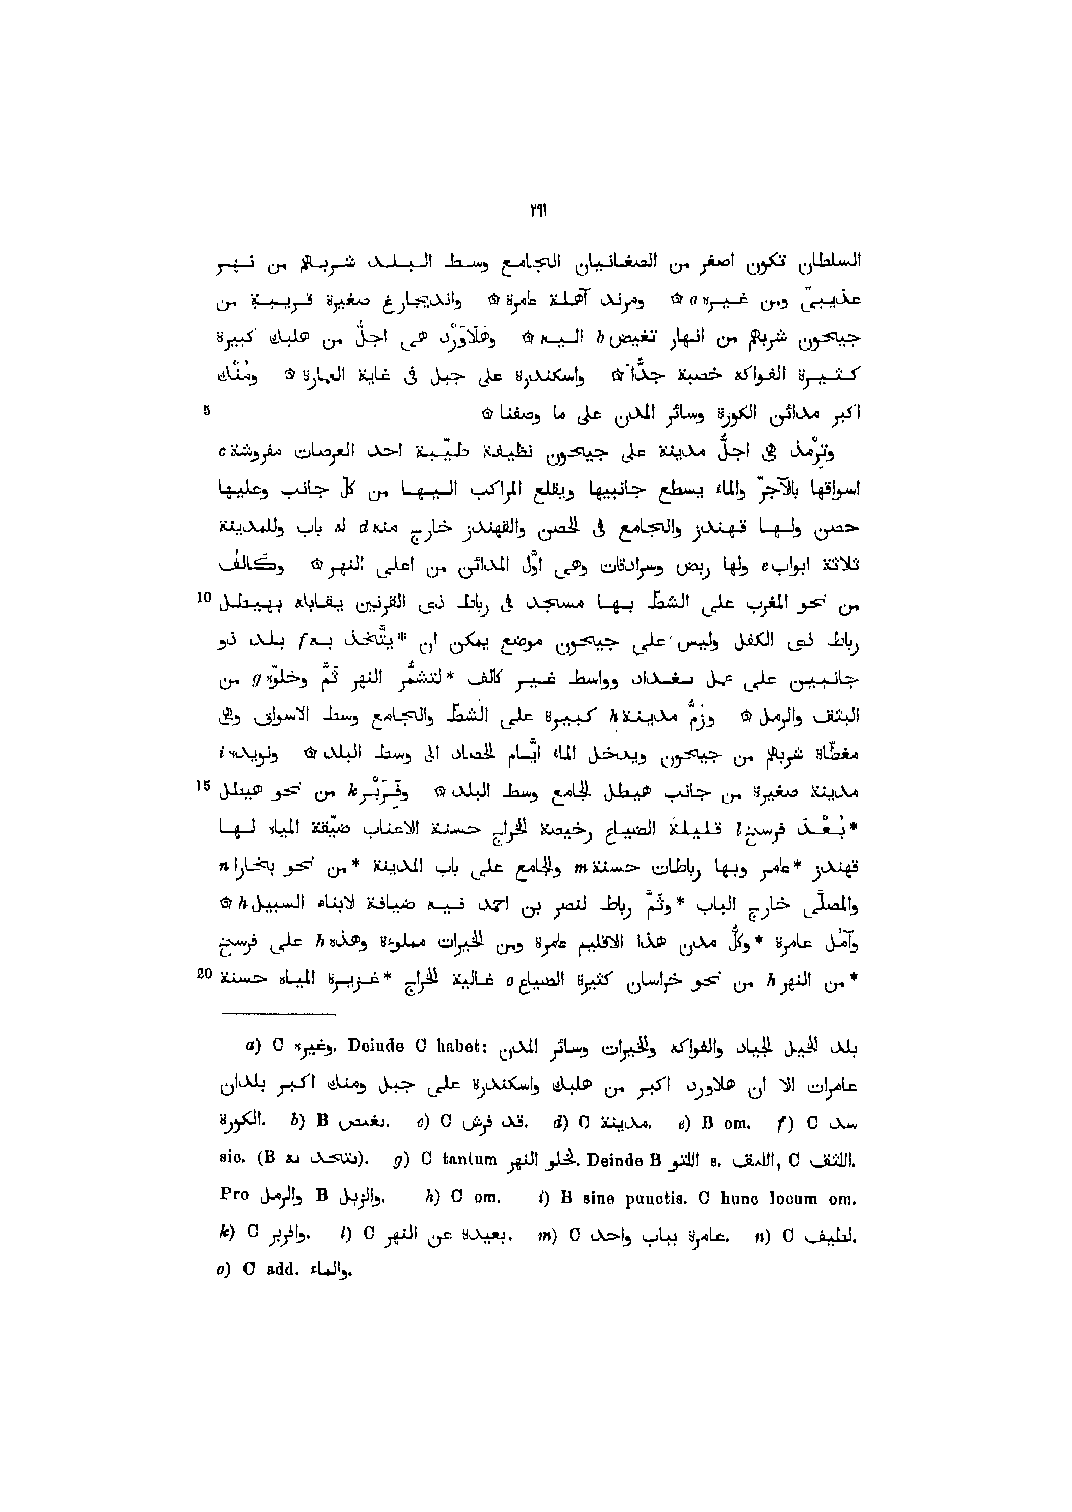 ٢٩١
السلطان تكون اصغر من الصغانيان الجامع وسط البلد شربهم من نهر
عذيبىّ ومن غيره a ۞ ومرند آهلة عامرة ۞ واندیجارغ صغيرة قريبة من
جيحون شربهم من انهار تغيص b اليه ۞ وهَلَاوَرْد هى اجلّ من هلبك كبيرة
كثيرة الفواكه خصبة جدًّا ۞ واسكندرة على جبل فى غاية العمارة ۞ ومُنْك
5 اكبر مدائن الكورة وسائر المدن على ما وصفنا ۞
وتِرْمذ هى اجلّ مدينة على جيحون نظيفة طيّبة احد العرصات مفروشة c
اسواقها بالآجرّ والماء يسطع جانبيها ويقلع المراكب اليها من كلّ جانب وعليها
حصن ولها قهندز والجامع فى الحصن والقهندز خارج منه d له باب وللمدينة
ثلاثة ابواب e ولها ربض وسرادقات وهى اوّل المدائن من اعلى النهر ۞ وكَالِف
10 من نحو المغرب على الشطّ بها مسجد فى رباط ذى القرنين يقابله بهيطل
رباط ذى الكفل وليس على جيحون موضع يمكن ان *يتّخذ به f بلد ذو
جانبين على عمل بغداد وواسط غير كالف *لتشمُّر النهر ثَمَّ وخلوّه g من
البثق والرمل ۞ وزَمُّ مدينة h كبيرة على الشطّ والجامع وسط الاسواق وهى
مغطّاة شربهم من جيحون ويدخل الماء ايّام الحصاد الى وسط البلد ۞ ونويده i
15 مدينة صغيرة من جانب هيطل الجامع وسط البلد ۞ وفَرَبْر k من نحو هيطل
*بُعْدَ فرسخ l قليلة الضياع رخيصة الخراج حسنة الاعناب ضيّقة المياه لها
قهندز *عامر وبها رباطات حسنة m والجامع على باب المدينة *من نحو بخارا n
والمصلّى خارج الباب *وثَمَّ رباط لنصر بن احمد فيه ضيافة لابناء السبيل h ۞
وآمُل عامرة *وكلُّ مدن هذا الاقليم عامرة ومن الخيرات مملوءة وهذه h على فرسخ
20 *من النهر h من نحو خراسان كثيرة الضياع o غالية الخراج *غزيرة المياه حسنة
a) C وغيره. Deinde C habet: بلد الخيل الجياد والفواكه والخيرات وسائر المدن
عامرات الا ان هلاورد اكبر من هلبك واسكندرة على جبل ومنك اكبر بلدان
الكورة. b) B بغيص. c) C قد فرش. d) C مدينة. e) B om. f) C سد
sic. (B بتحد به). g) C tantum لخلو النهر. Deinde B اللتو s. اللىىف, C اللثقف.
Pro والرمل B والربل. h) C om. i) B sine punctis. C hunc locum om.
k) C والربر. l) C بعيدة عن النهر. m) C عامرة بباب واحد. n) C لطيف.
o) C add. والماء.